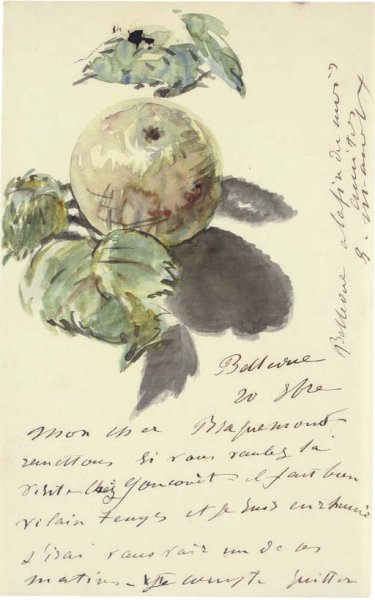 Bellevue
20
mon cher Braquemond
remettons si vous voulez la
visite chez Goncourt - il fait bien
vilain temps et je suis enrhumé
j'irai vous voir un de ces
matins - je compte quitter
Bellevue a la fin du mois
amitiés
E. Manet